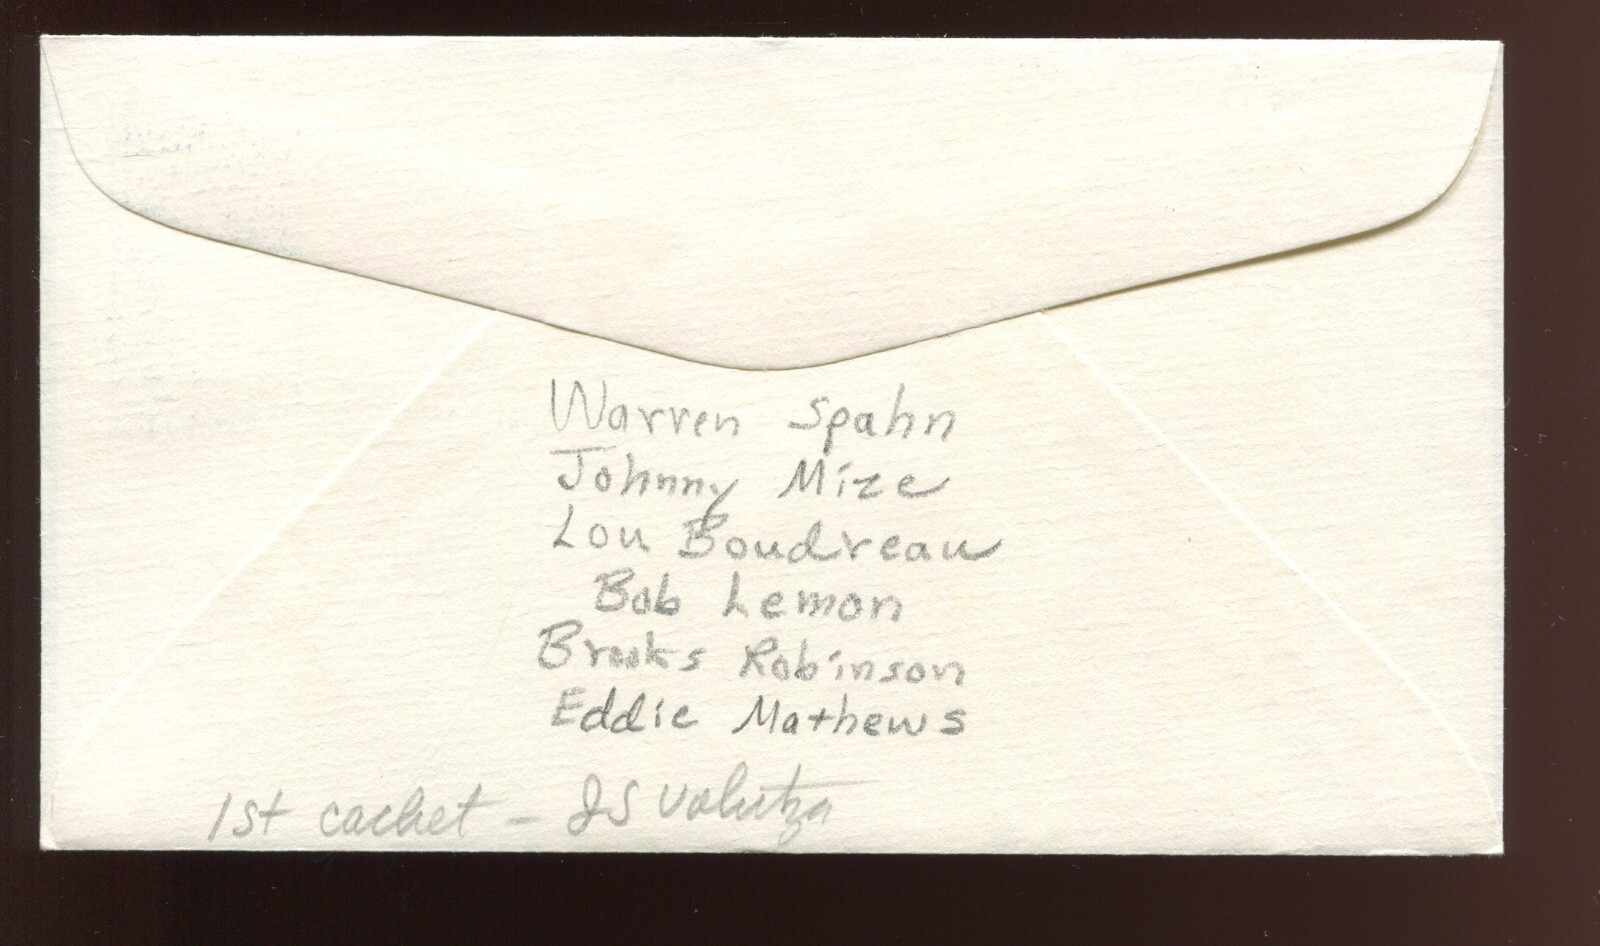 Warren Spahn
Johnny Mize
Lou Boudreau
Bob Lemon
Brooks Robinson
Eddie Mathews
1st cachet - JS